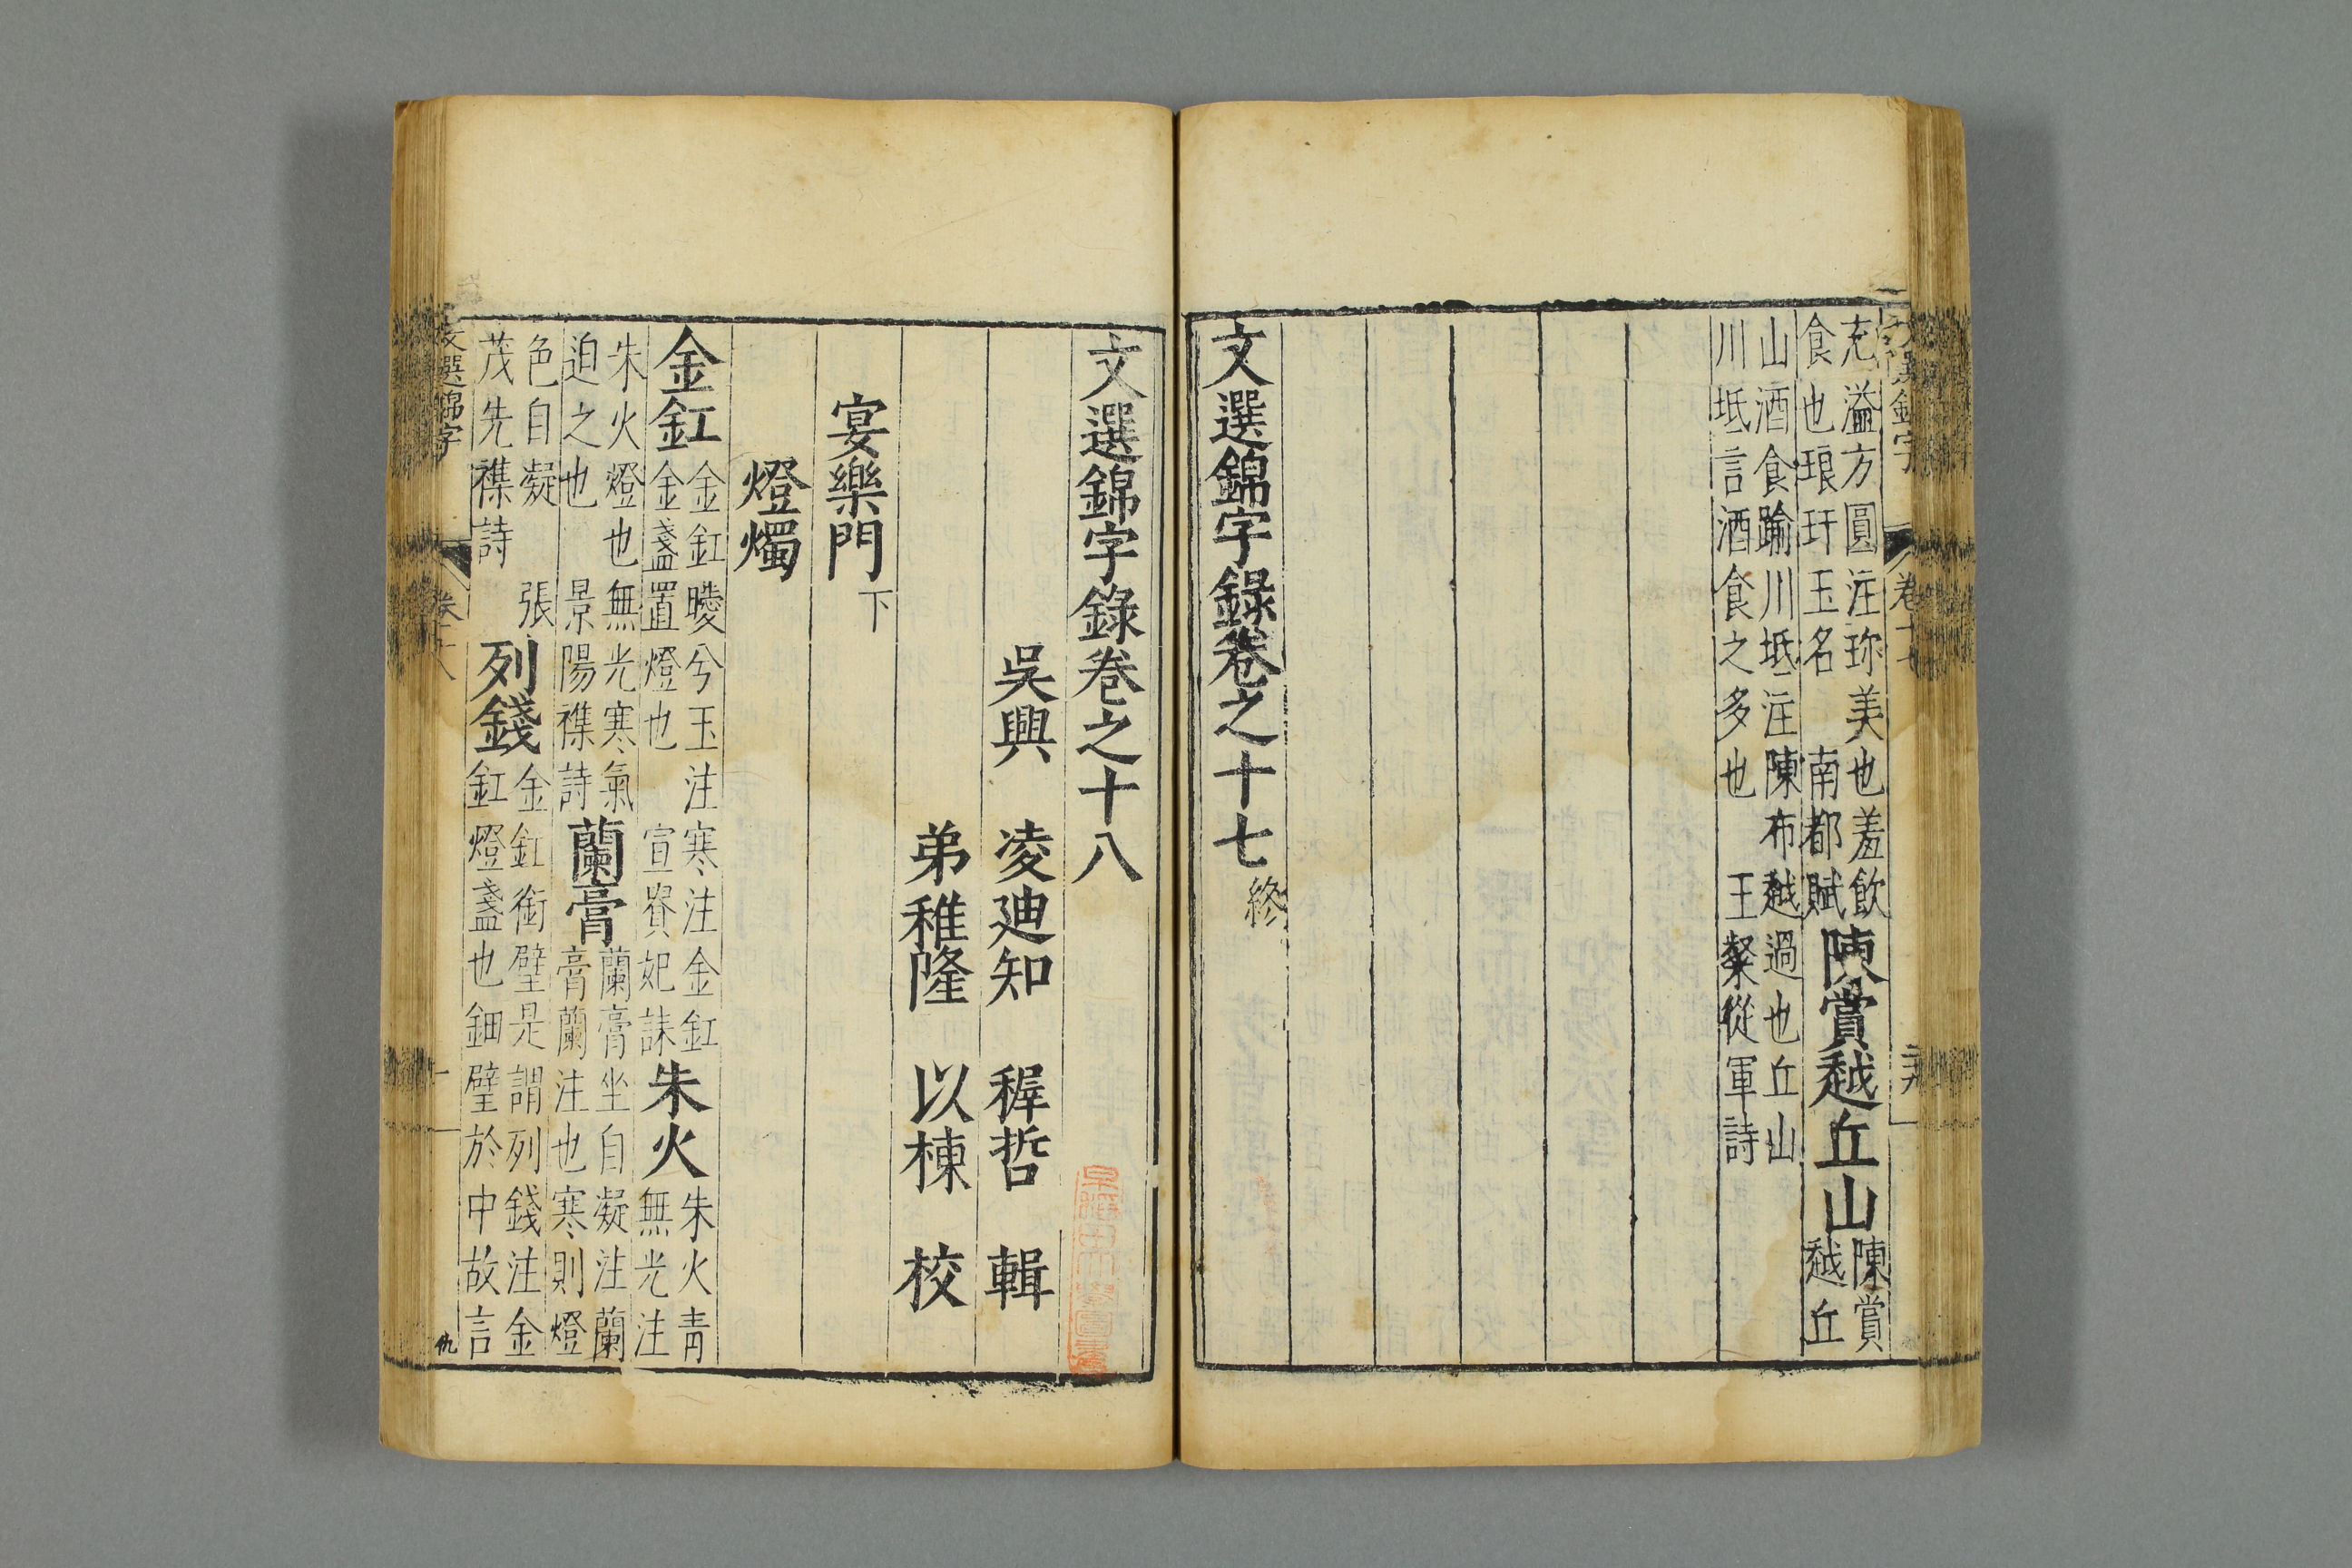 充溢方圓注珎美也羞飲
食也琅玕玉名 南都賦
陳賞越丘山
陳賞
越丘
山酒食踰川坻注陳布越過也丘山
川坻言酒食之多也 王粲從軍詩
文選錦字錄卷之十七終
文選錦字 卷十七
文選錦字錄卷之十八
吳興 凌迪知 穉哲 輯
弟稚隆 以棟 校
宴樂門下
燈燭
金釭
金釭曖兮玉注寒注金釭
金盞置燈也 宣貴妃誄
朱火
朱火青
無光注
朱火燈也無光寒氣
迫之也 景陽襍詩
蘭膏
蘭膏坐自凝注蘭
膏蘭注也寒則燈
色自凝 張
茂先襍詩
列錢
金釭銜璧是謂列錢注金
釭燈盞也鈿璧於中故言
文選錦字 卷十八 一